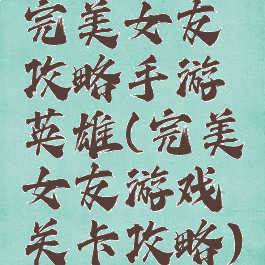 完美女友
攻略手游
英雄(完美
女友游戏
关卡攻略)